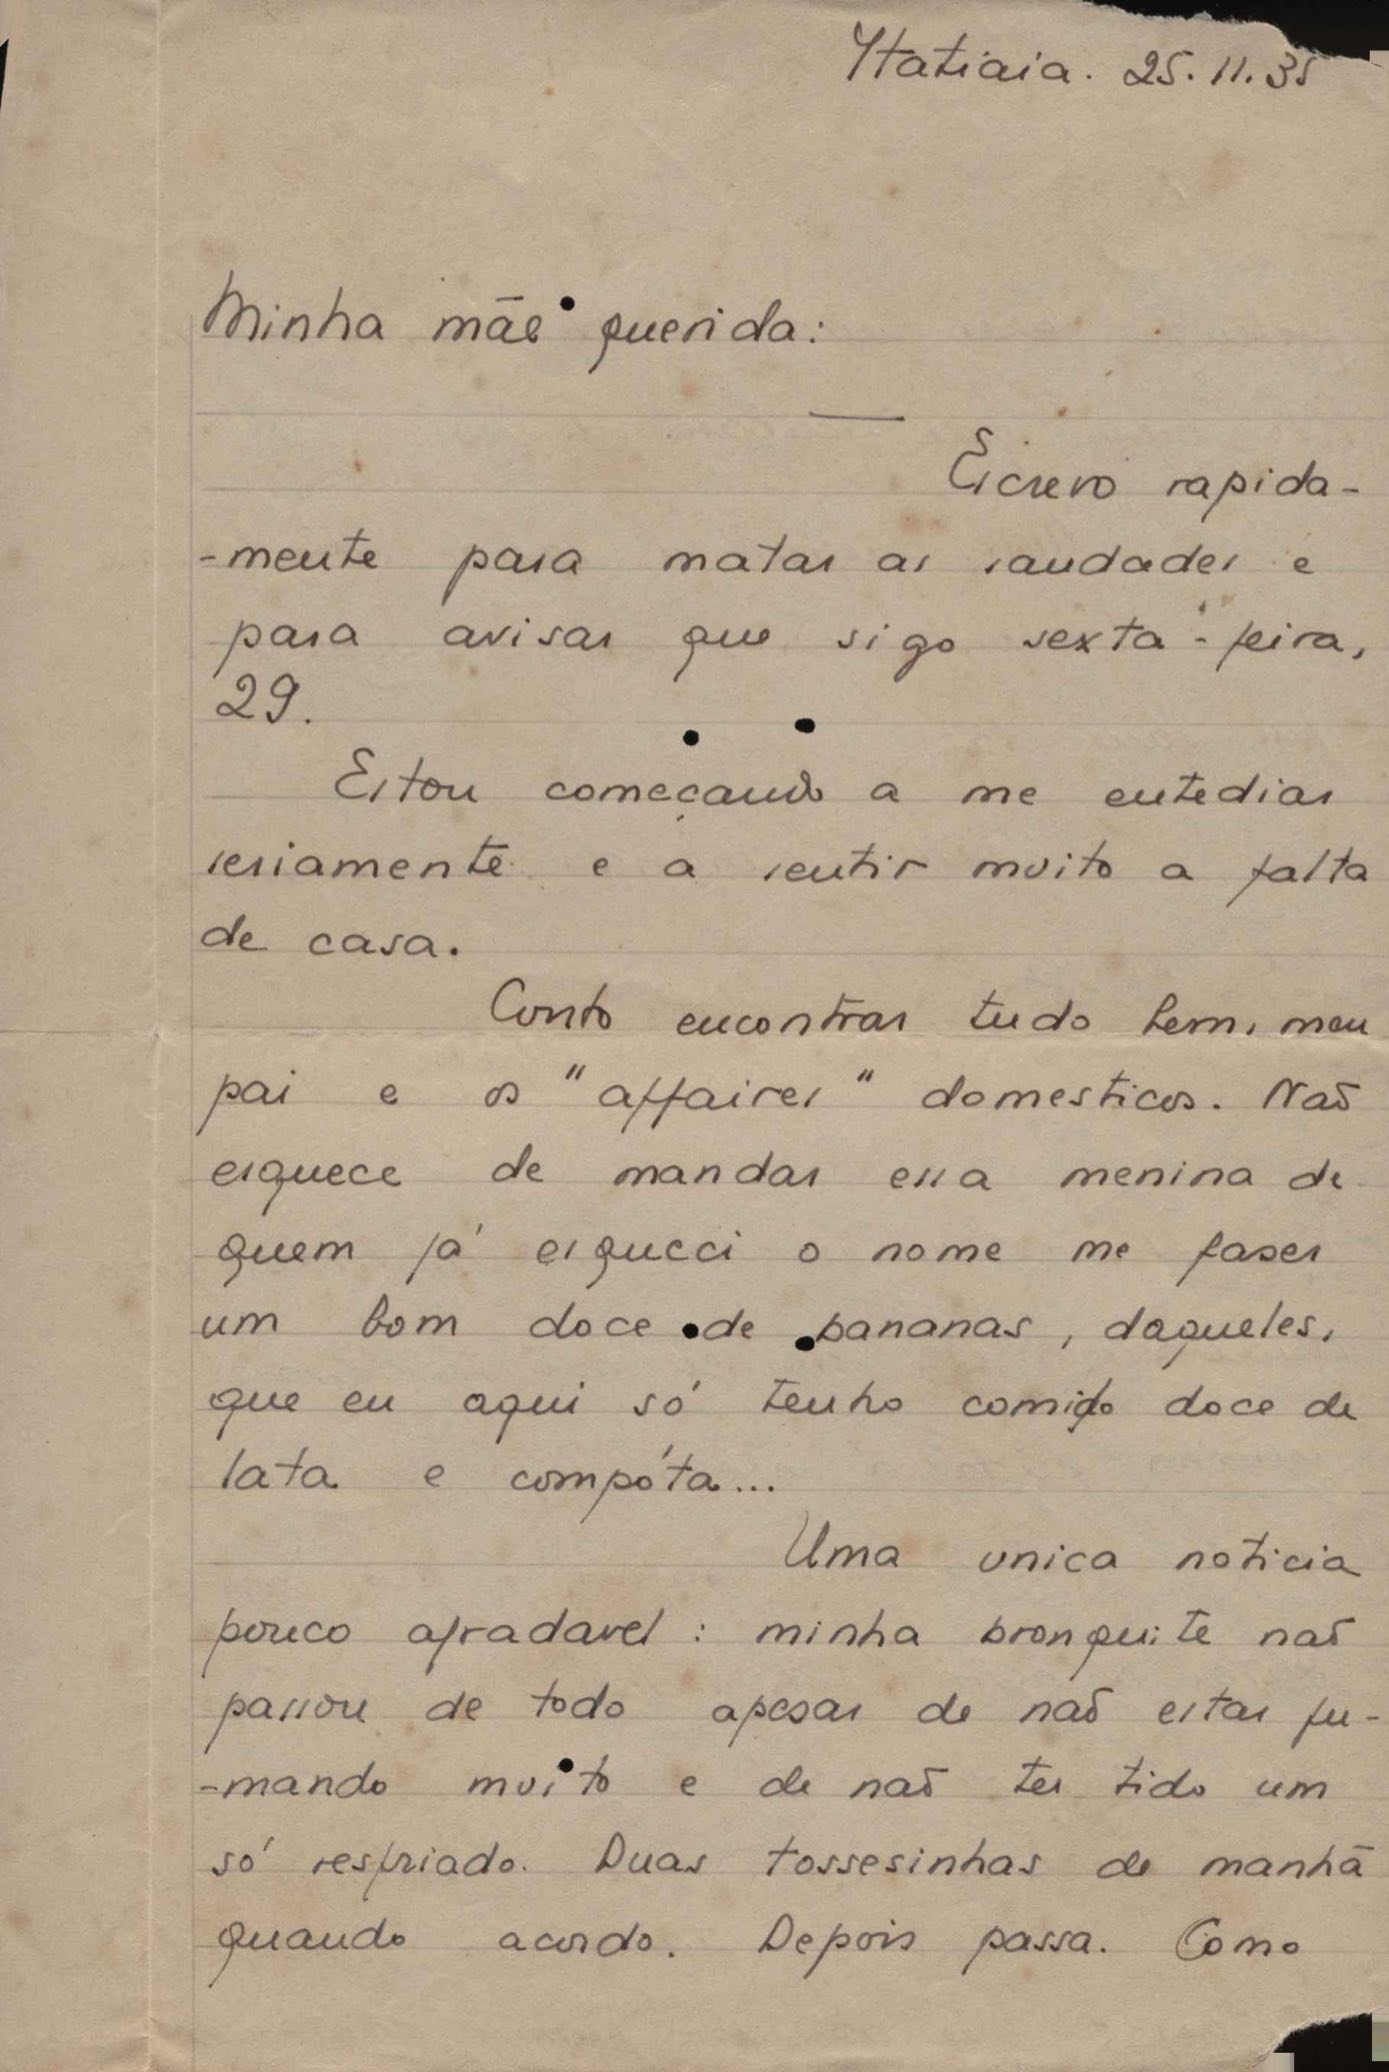 Itatiaia. 25.11.35
Minha mãe querida:
Escrevo rapida-
-mente para matar as saudades e
para avisar que sigo sexta-feira,
29.
Estou começando a me entediar
seriamente e a sentir muito a falta
de casa.
Conto encontrar tudo bem, meu
pai e os "affaires" domesticos. Naõ
esquece de mandar essa menina de
quem já esqueci o nome me faser
um bom doce de bananas, daqueles,
que eu aqui só tenho comido doce de
lata e compóta...
Uma unica noticia
pouco agradavel: minha bronquite naõ
passou de todo apesar de naõ estar fu-
-mando muito e de naõ ter tido um
só resfriado. Duas tossesinhas de manhã
quando acordo. Depois passa. Como